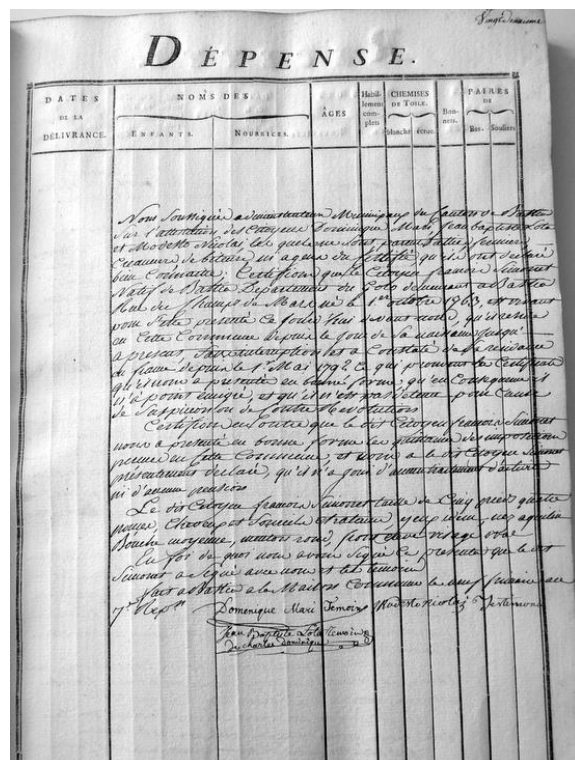 Vingt deuxieme
DÉPENSE.
DATES DE LA DÉLIVRANCE.
NOMS DES
ENFANTS.
NOURRICES.
ÂGES
Habillemens complets
CHEMISES DE TOILE.
blanche
écrue.
Bonnets.
PAIRES DE
Bas.
Souliers
Nous Soussignés administrateurs Municipaux du Canton de Bastia
Sur l'attestation des Citoyens Dominique Mari, Jean baptiste Lota
et Modesto Nicolai, les quels ne sont parents, alliés, fermiers,
Creanciers, debiteurs, ni agens du qu'ils ont déclaré
bien Connaitre; Certifions que le Citoyen francois Simonet
Natif de Bastia Departement du Golo demeurant a Bastia
Rue du Champ de Mars né le 1er octobre 1763, est vivant
pour s'etre presenté Ce jour d'hui devant nous, qu'il reside
en Cette Commune depuis le jour de Sa naissance jusqu'
a present, Sans interruption et a Constaté Sa residence
de france depuis le 1er Mai 1792 Ce qui prouvent les Certificats
qu'il nous a presenté en bonne forme, qu'en Consequence il
n'a point émigré, et qu'il n'est pas detenu pour Cause
de Suspicion de Contre Revolution
Certifions en Outre que le dit Citoyen francois Simonet
nous a presenté en bonne forme les quittances des impositions
en Cette Commune, et nous a le dit Citoyen Simonet
présentement déclaré, qu'il n'a joui d'aucun traitement d'activité
ni d'aucune pension
Le dit Citoyen francois Simonet taille de Cinq pieds quatre
pouces, Cheveux et Sourcils Chatains, yeux idem, nez aquilin
Bouche moyenne, menton rond, front elevé visage ovale
En foi de quoi nous avons Signé Ce presente que le dit
Simonet a Signé avec nous et les temoins
fait a Bastia a la Maison Commune le neuf frimaire an
7e Rep.
Domenique Mari Temoin Modesto Nicolaj Testemone
Jean Baptiste Lota Temoin
de charles dominique